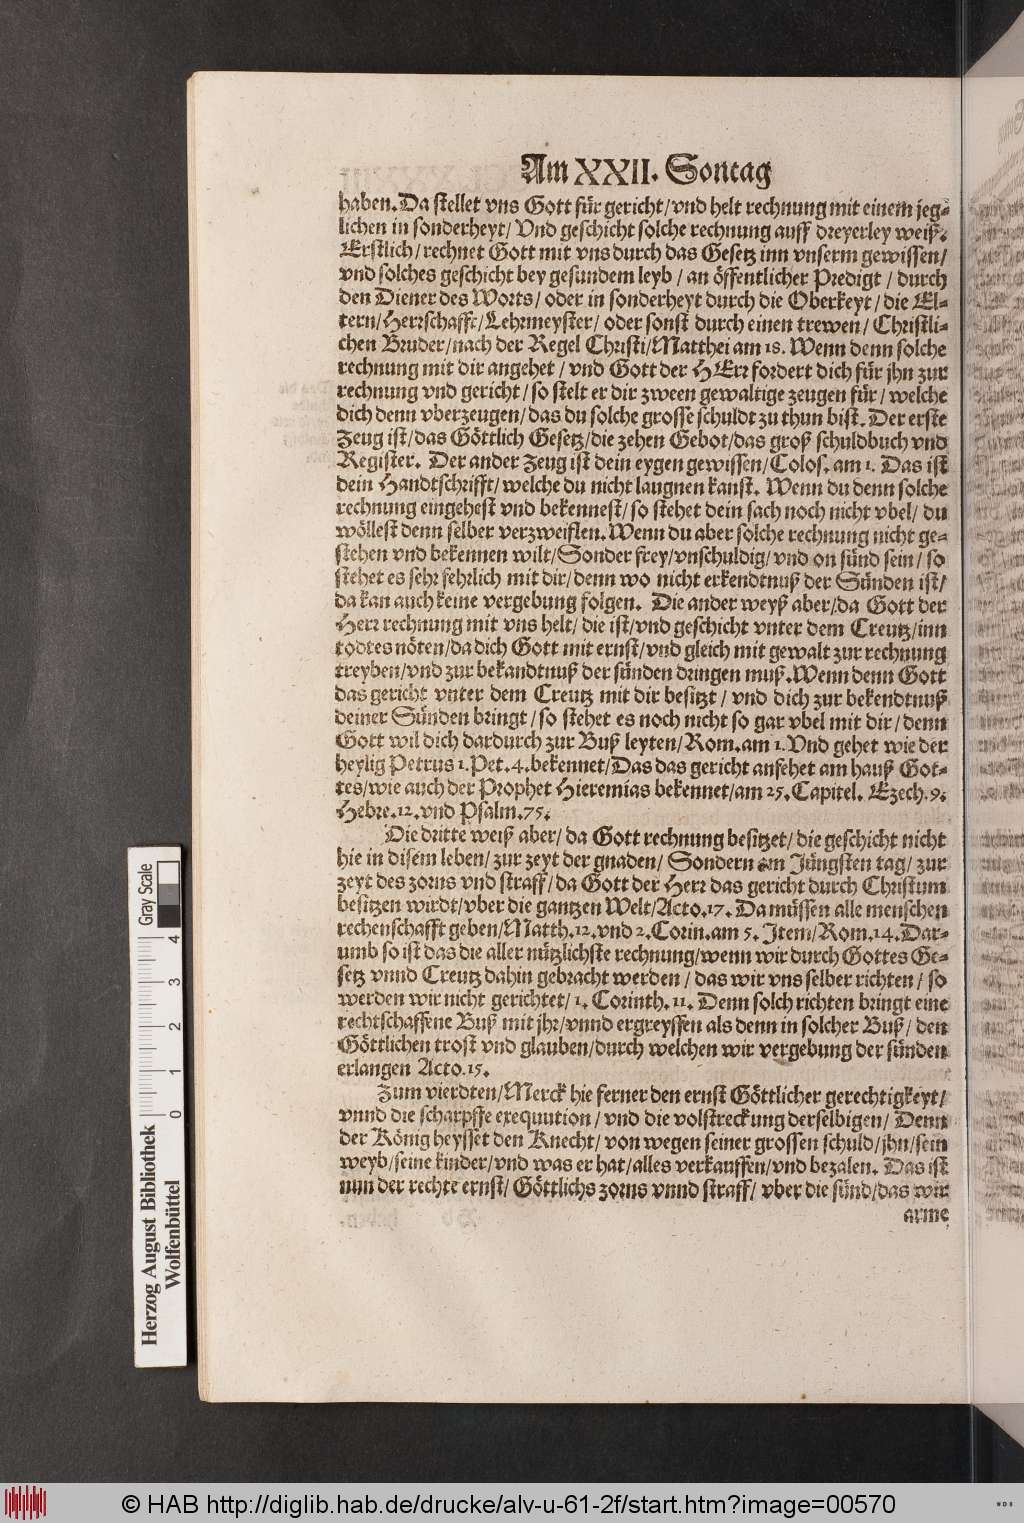 Am XXII. Sontag
haben. Da stellet vns Gott für gericht/vnd helt rechnung mit einem jeg-
lichen in sonderheyt/ Vnd geschicht solche rechnung auff dreyerley weiß.
Erstlich/rechnet Gott mit vns durch das Gesetz inn vnserm gewissen/
vnd solches geschicht bey gesundem leyb / an öffentlicher Predigt / durch
den Diener des Worts/ oder in sonderheyt durch die Oberkeyt/ die El-
tern/Herrschafft/Lehrmeyster/ oder sonst durch einen trewen/ Christli-
chen Bruder/nach der Regel Christi/Matthei am 18. Wenn denn solche
rechnung mit dir angehet / vnd Gott der HErr fordert dich für jhn zur
rechnung vnd gericht/ so stelt er dir zween gewaltige zeugen für/ welche
dich denn vberzeugen/das du solche grosse schuldt zu thun bist. Der erste
Zeug ist/das Göttlich Gesetz/die zehen Gebot/das groß schuldbuch vnd
Register. Der ander Zeug ist dein eygen gewissen/Colos. am 1. Das ist
dein Handtschrifft/welche du nicht laugnen kanst. Wenn du denn solche
rechnung eingehest vnd bekennest/ so stehet dein sach noch nicht vbel/ du
wöllest denn selber verzweiflen. Wenn du aber solche rechnung nicht ge-
stehen vnd bekennen wilt/Sonder frey/vnschuldig/vnd on sünd sein/ so
stehet es sehr fehrlich mit dir/denn wo nicht erkendtnuß der Sünden ist/
da kan auch keine vergebung folgen. Die ander weyß aber/da Gott der
Herr rechnung mit vns helt/ die ist/vnd geschicht vnter dem Creutz/inn
todtes nöten/da dich Gott mit ernst/vnd gleich mit gewalt zur rechnung
treyben/vnd zur bekandtnuß der sünden dringen muß. Wenn denn Gott
das gericht vnter dem Creutz mit dir besitzt / vnd dich zur bekendtnuß
deiner Sünden bringt/so stehet es noch nicht so gar vbel mit dir/ denn
Gott wil dich dardurch zur Buß leyten/Rom. am 1. Vnd gehet wie der
heylig Petrus 1. Pet. 4. bekennet/Das das gericht anfehet am hauß Got-
tes/wie auch der Prophet Hieremias bekennet/am 25. Capitel. Ezech. 9.
Hebre. 12. vnd Psalm. 75.
Die dritte weiß aber/ da Gott rechnung besitzet/ die geschicht nicht
hie in disem leben/ zur zeyt der gnaden/ Sondern am Jüngsten tag/ zur
zeyt des zorns vnd straff/da Gott der Herr das gericht durch Christum
besitzen wirdt/vber die gantzen Welt/Acto. 17. Da müssen alle menschen
rechenschafft geben/Matth. 12. vnd 2. Corin. am 5. Item/Rom. 14. Dar-
umb so ist das die aller nützlichste rechnung/wenn wir durch Gottes Ge-
setz vnnd Creutz dahin gebracht werden / das wir vns selber richten / so
werden wir nicht gerichtet/ 1. Corinth. 11. Denn solch richten bringt eine
rechtschaffene Buß mit jhr/vnnd ergreyffen als denn in solcher Buß/ den
Göttlichen trost vnd glauben/durch welchen wir vergebung der sünden
erlangen Acto. 15.
Zum vierdten/Merck hie ferner den ernst Göttlicher gerechtigkeyt/
vnnd die scharpffe exequution / vnd die volstreckung derselbigen/ Denn
der König heysset den Knecht/ von wegen seiner grossen schuld/jhn/sein
weyb/seine kinder/vnd was er hat/alles verkauffen/vnd bezalen. Das ist
nun der rechte ernst/ Göttlichs zorns vnnd straff/ vber die sünd/das wir
arme
Gray Scale
4
3
2
1
0
Herzog August Bibliothek
Wolfenbüttel
© HAB http://diglib.hab.de/drucke/alv-u-61-2f/start.htm?image=00570